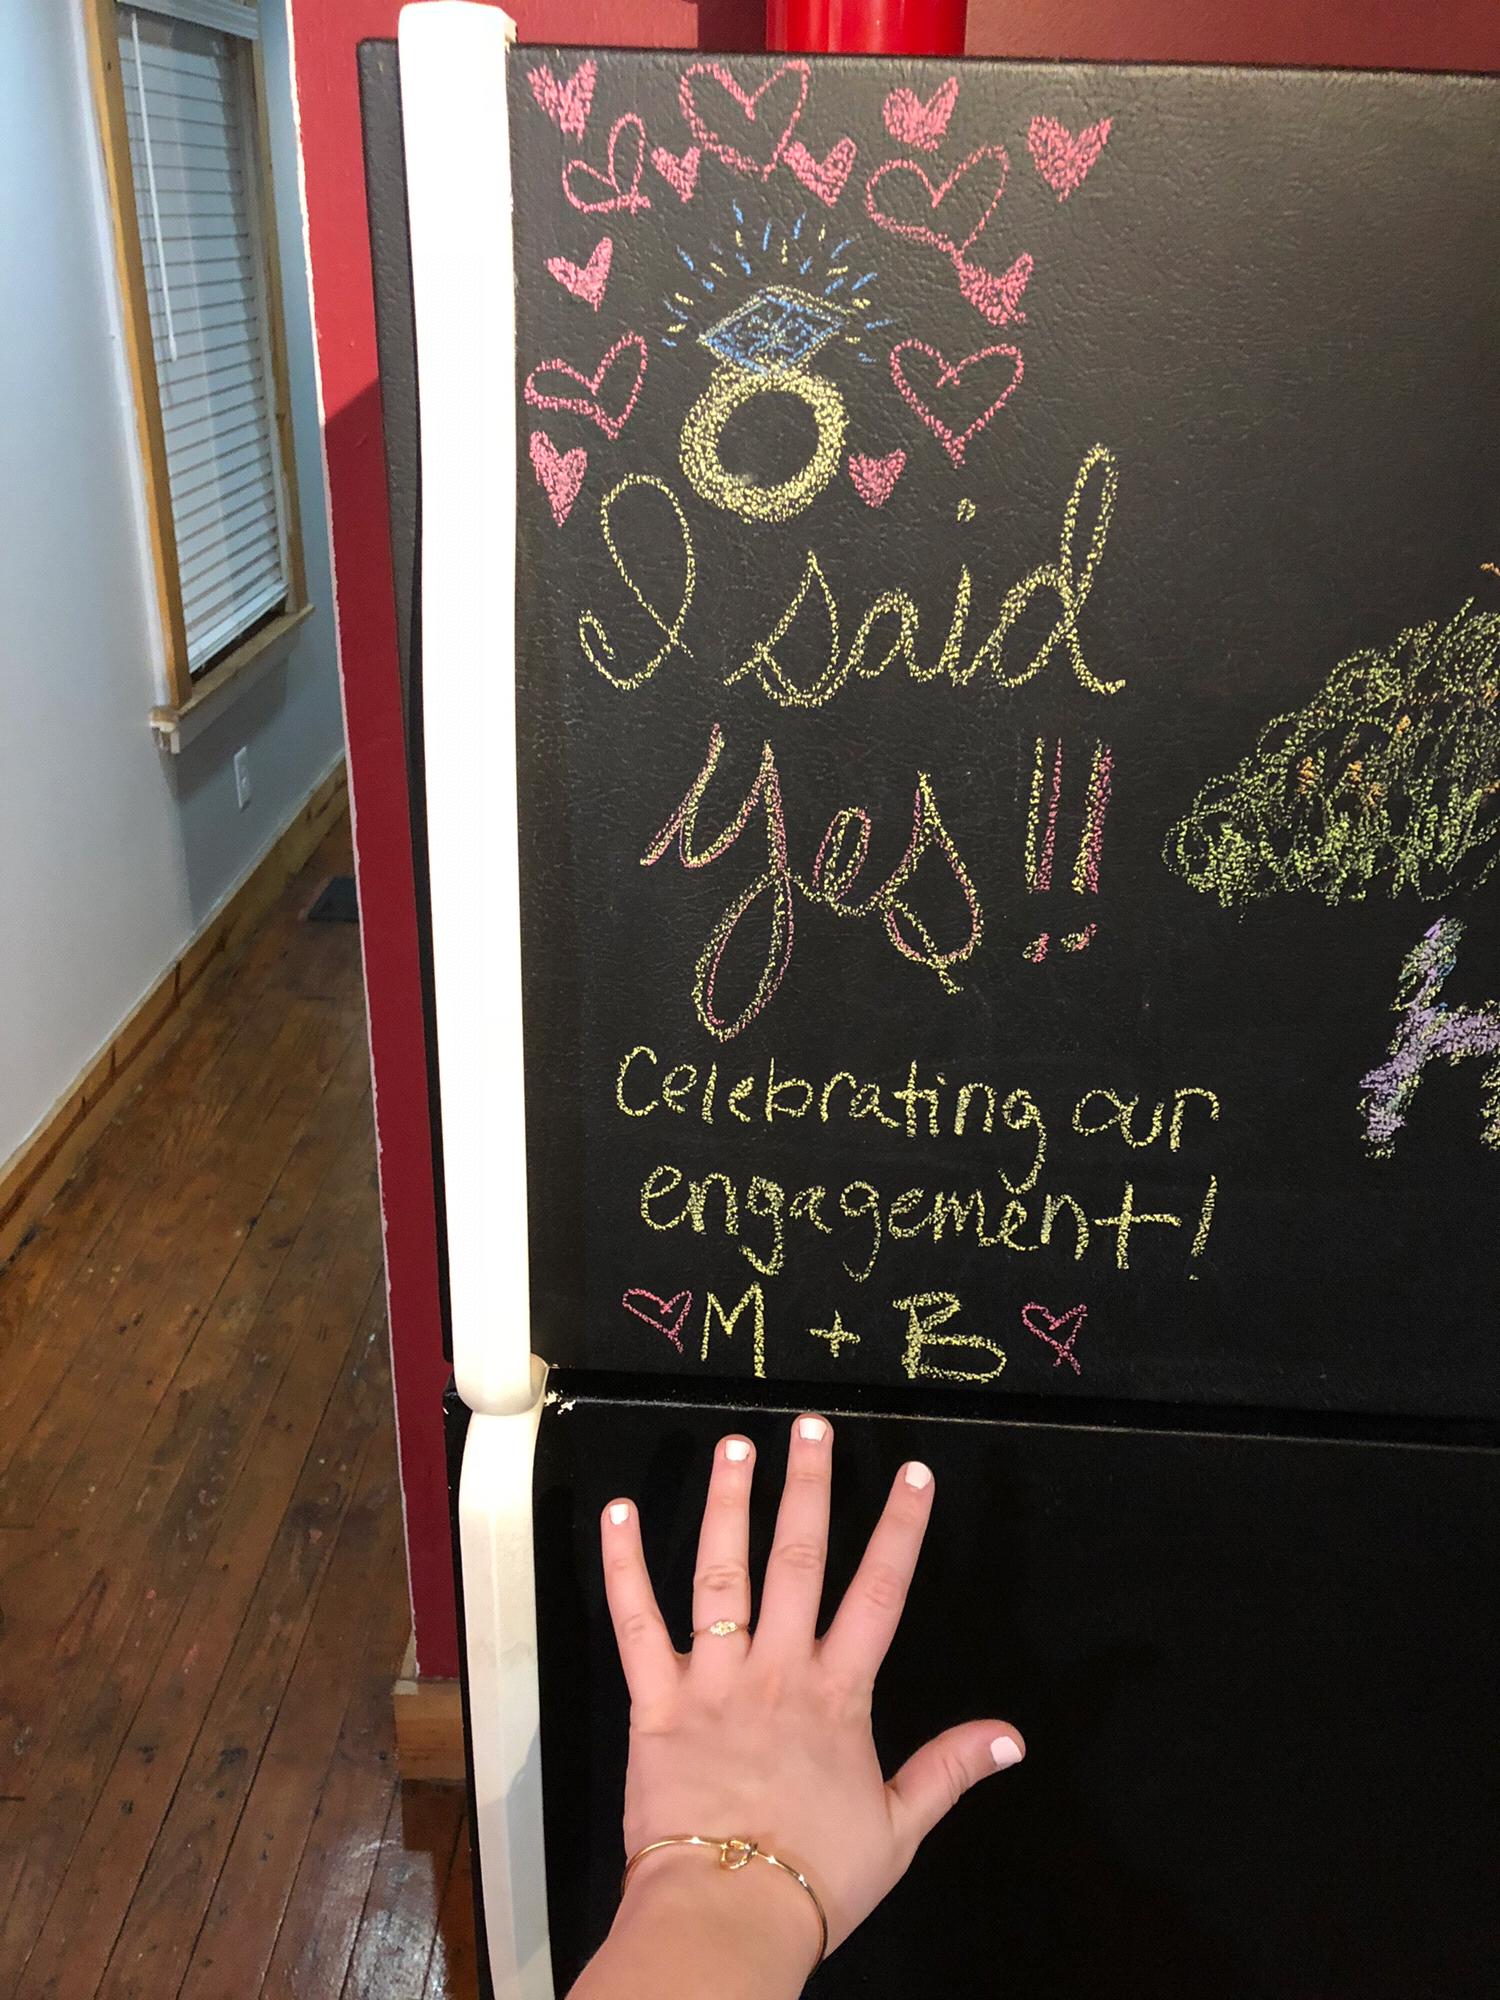 I said
Yes!!
Celebrating our
engagement!
M + B